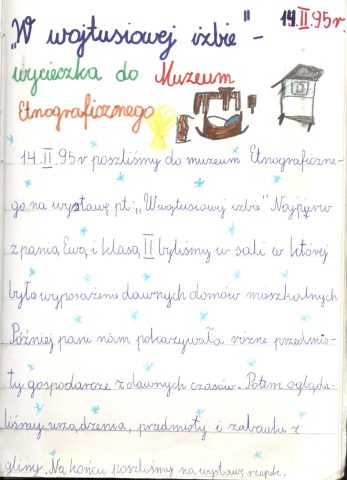 14.II.95r.
"W wojtusiowej izbie" -
wycieczka do Muzeum
Etnograficznego
14.II.95r poszliśmy do muzeum Etnograficzne-
go na wystawę pt: „Wwojtusiowej izbie" Najpierw
z panią Ewą i klasą II byliśmy w sali w której
było wyposażenie dawnych domów mieszkalnych
Później pani nam pokazywała rożne przedmio-
ty gospodarcze z dawnych czasów. Potem ogląda-
liśmy urządzenia, przedmioty i zabawki z
gliny. Na końcu poszliśmy na wystawę szopek.